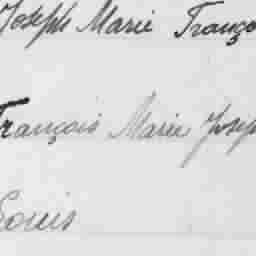 Joseph Marie Franço
François Marie Josep
Louis